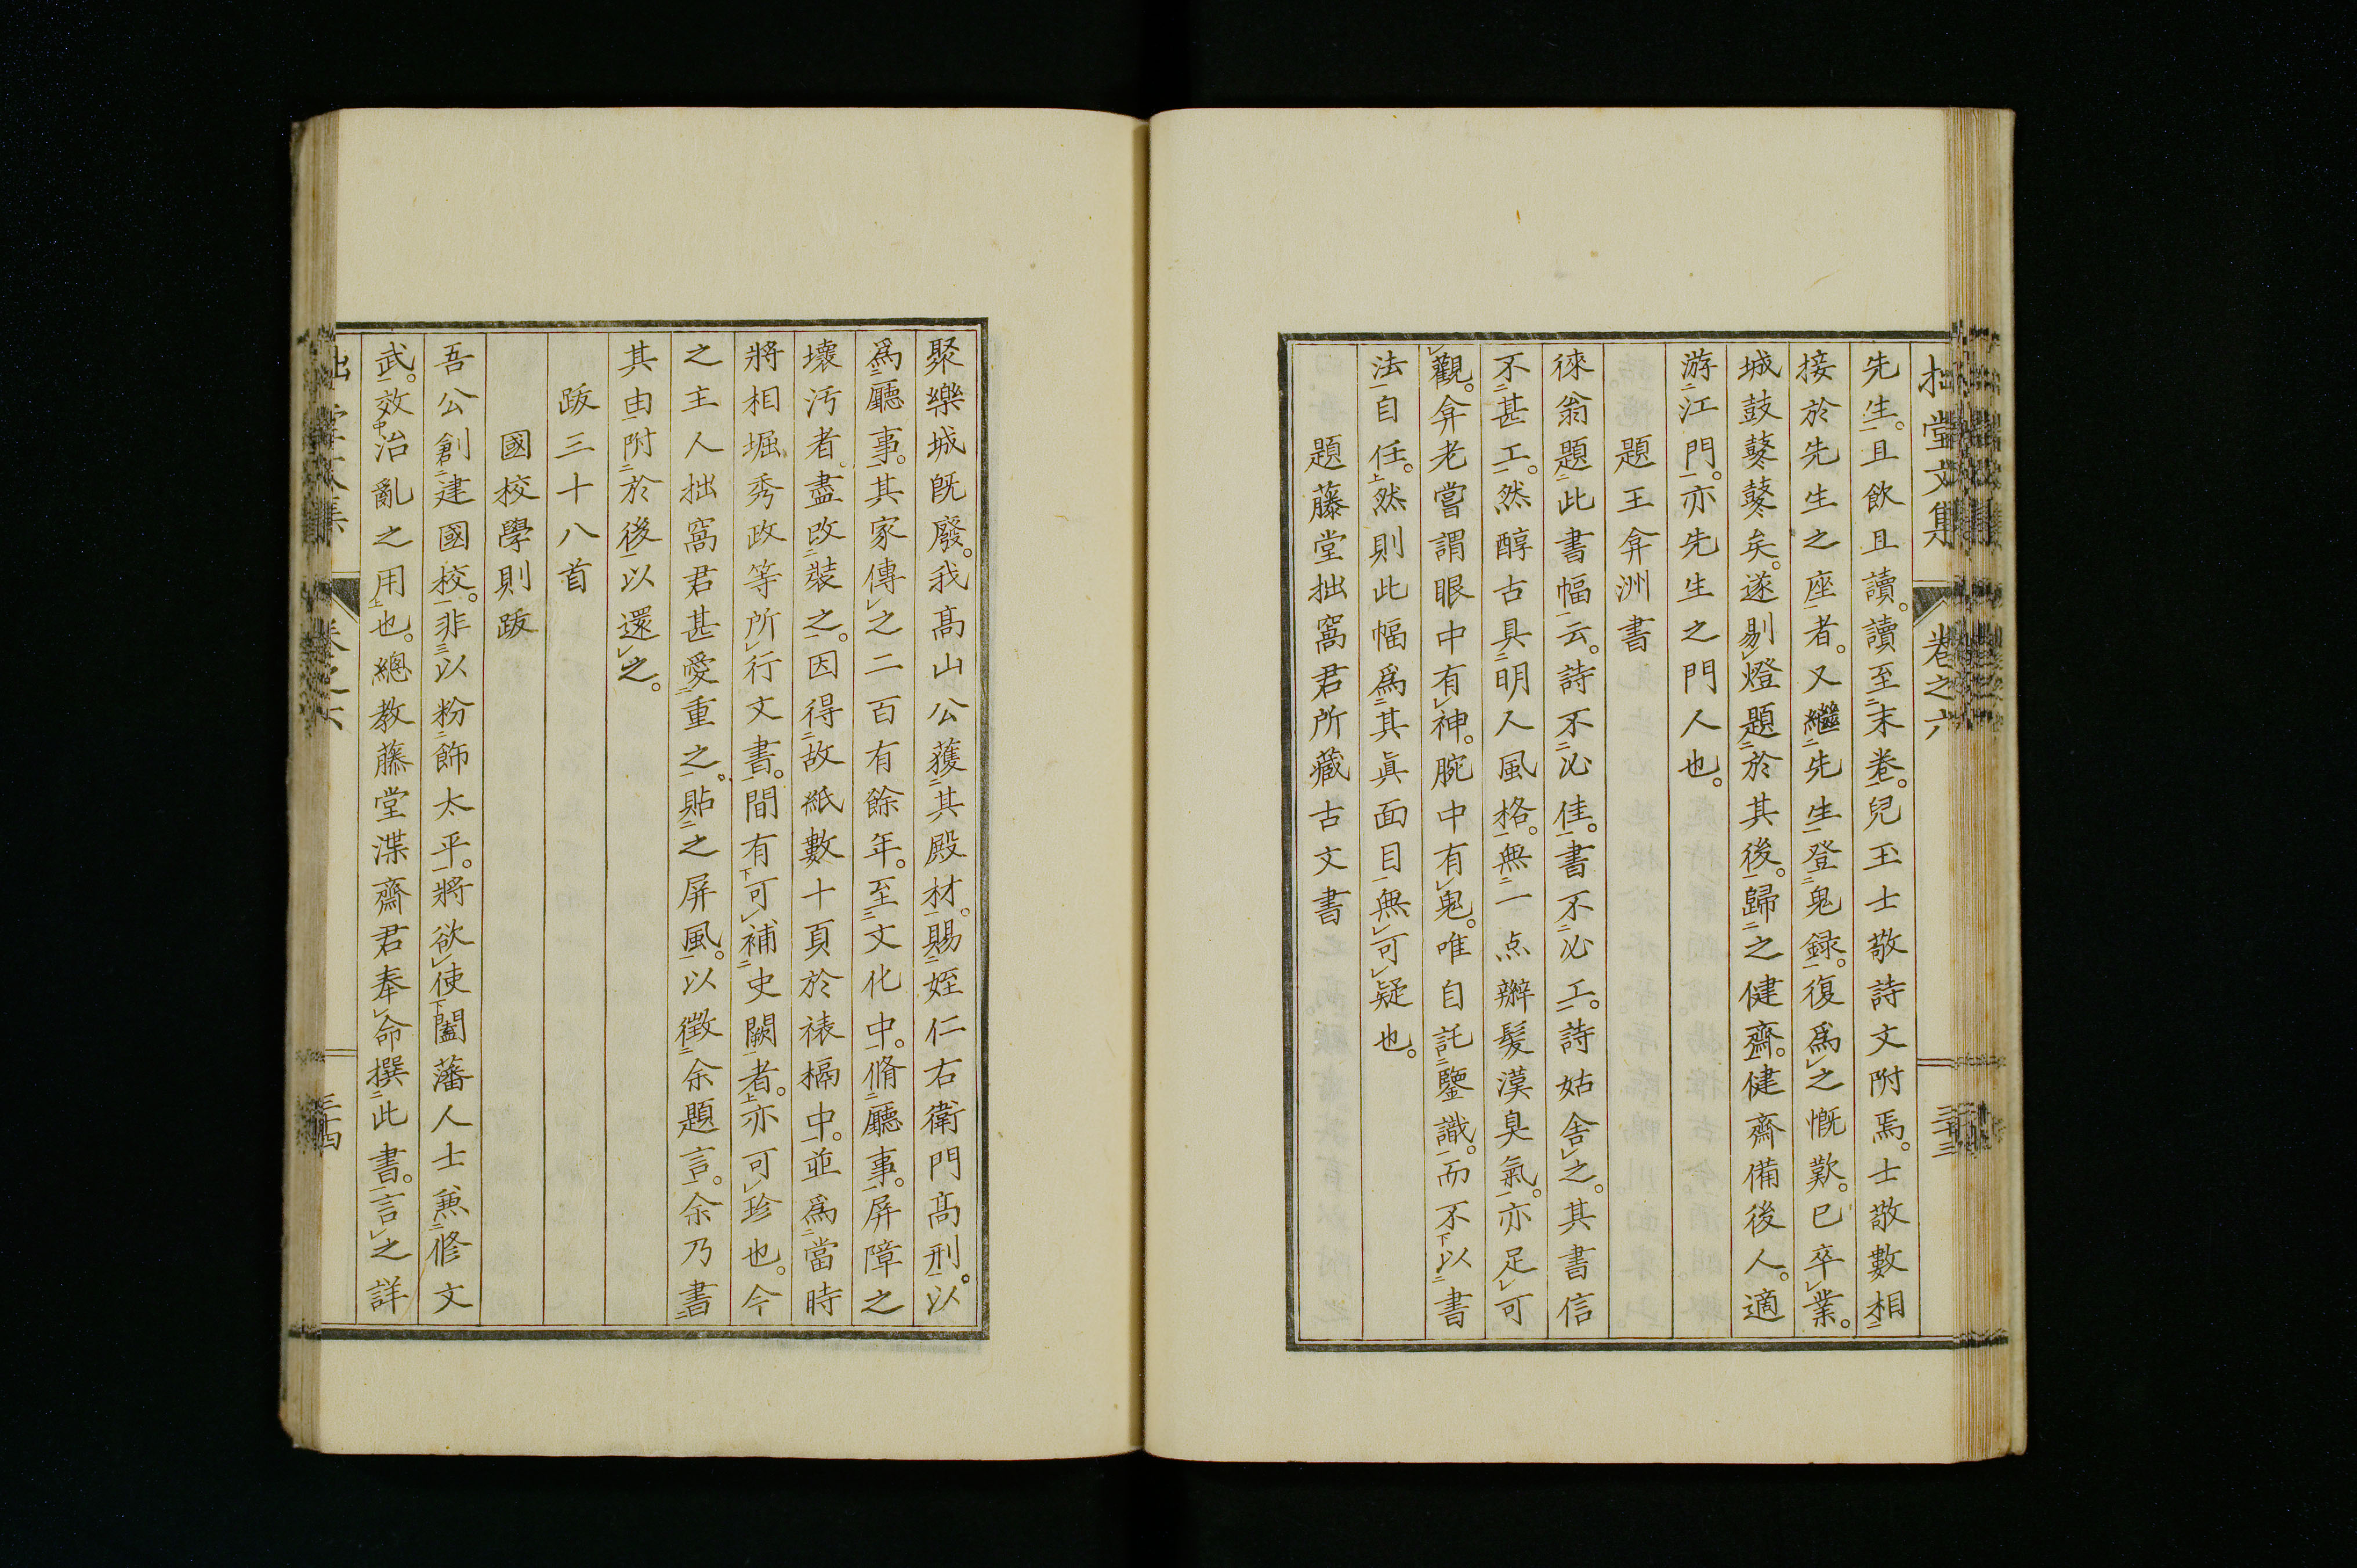 拙堂文集 卷之六 三十三
先生。且飲且讀。讀至末卷。兒玉士敬詩文附焉。士敬數相
接於先生之座者。又繼先生登鬼録。復爲之慨歎。已卒業。
城鼓鼕鼕矣。遂剔燈題於其後。歸之健齋。健齋備後人。適
游江門。亦先生之門人也。
題王弇洲書
徠翁題此書幅云。詩不必佳。書不必工。詩姑舍之。其書信
不甚工。然醇古具明人風格。無一点辮髮漢臭氣。亦足可
觀。弇老嘗謂眼中有神。腕中有鬼。唯自託鑒識。而不以書
法自任。然則此幅爲其眞面目無可疑也。
題藤堂拙窩君所藏古文書
聚樂城旣廢。我髙山公獲其殿材。賜姪仁右衛門髙刑。以
爲廳事。其家傳之二百有餘年。至文化中。脩廳事。屏障之
壞汚者、盡改裝之。因得故紙數十頁於裱槅中。並爲當時
將相堀秀政等所行文書。間有可補史闕者。亦可珍也。今
之主人拙窩君甚愛重之。貼之屏風。以徵余題言。余乃書
其由附於後以還之。
跋三十八首
國校學則跋
吾公創建國校。非以粉飾太平。將欲使闔藩人士兼修文
武。效治亂之用也。總教藤堂渫齋君奉命撰此書。言之詳